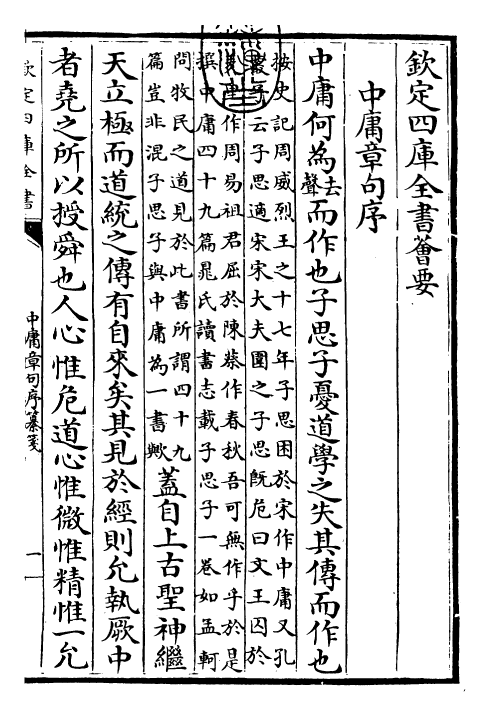 欽定四庫全書薈要
中庸章句序
中庸何為去聲而作也子思子憂道學之失其傳而作也
按史記周威烈王之十七年子思困於宋作中庸又孔
子云子思適宋宋大夫圍之子思既危曰文王囚於
作周易祖君屈於陳蔡作春秋吾可無作乎於是
撰中庸四十九篇晁氏讀書志載子思子一卷如孟軻
問牧民之道見於此書所謂四十九
篇豈非混子思子與中庸為一書歟
蓋自上古聖神繼
天立極而道統之傳有自來矣其見於經則允執厥中
者堯之所以授舜也人心惟危道心惟微惟精惟一允
欽定四庫全書
中庸章句序纂箋
一